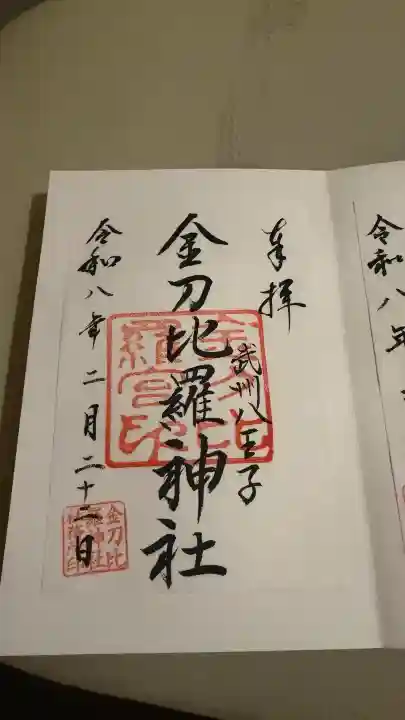 奉拝
武州八王子
金刀比羅神社
令和八年二月二十二日
金刀比
羅神社
令和八年